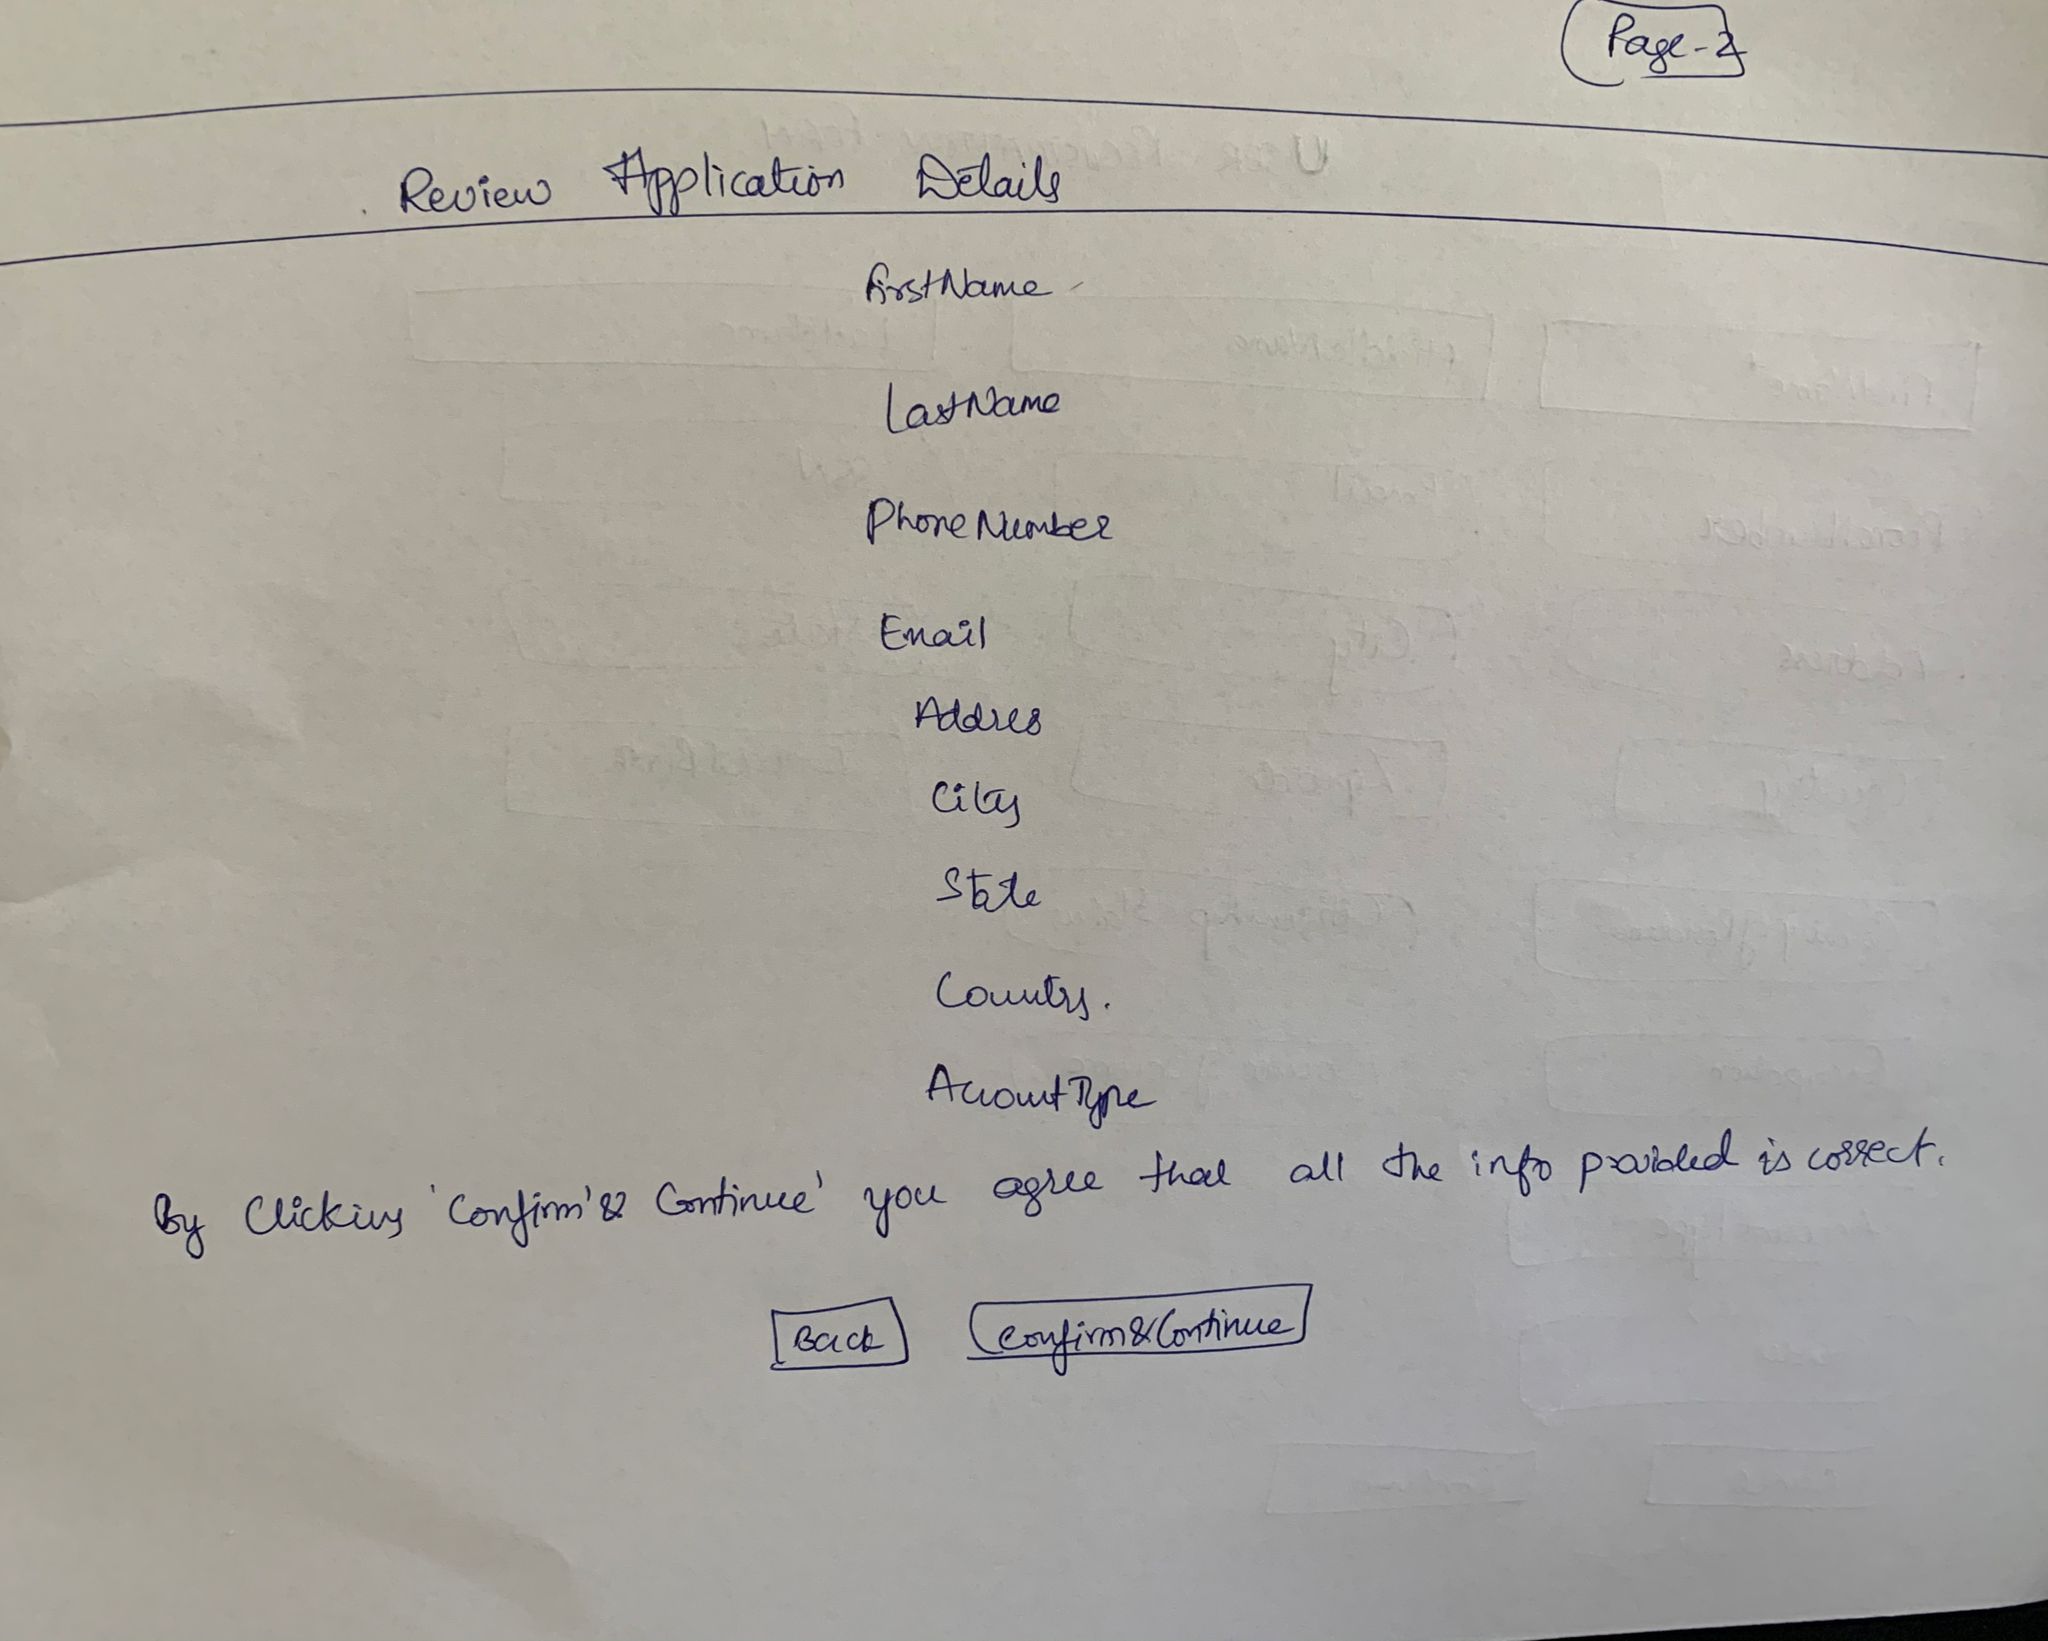 Page-2
Review Application Details
FirstName
LastName
PhoneNumber
Email
Addres
City
State
Country.
AccountType
By Clicking 'Confirm'& Continue' you agree that all the info provided is correct.
Back Confirm&Continue